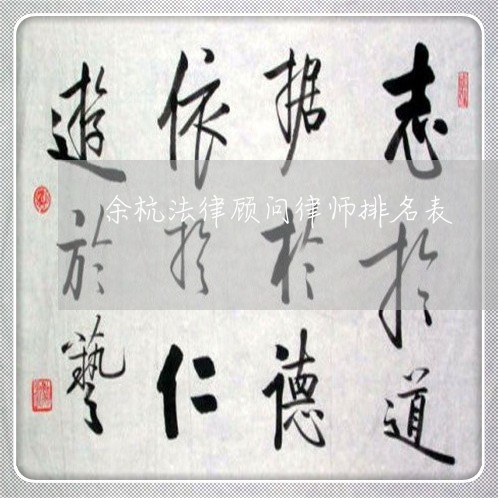 志於道
据於德
依於仁
遊於藝
余杭法律顾问律师排名表